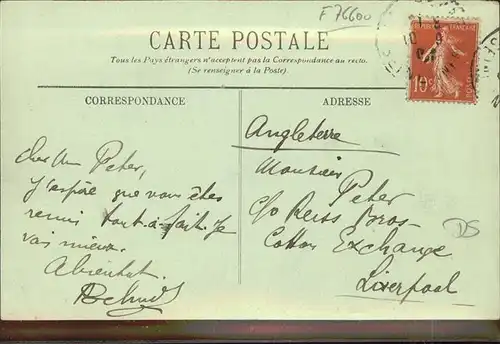 F 76600
CARTE POSTALE
Tous les Pays étrangers n'acceptent pas la Correspondance au recto.
(Se renseigner à la Poste.)
RÉPUBLIQUE FRANÇAISE
10c
CORRESPONDANCE
Cher Peter,
J'espère que vous êtes
remis tout-à-fait. Je
vais mieux.
A bientôt.
ADRESSE
Angleterre
Monsieur
Peter
c/o Reiss Bros
Cotton Exchange
Liverpool
DS